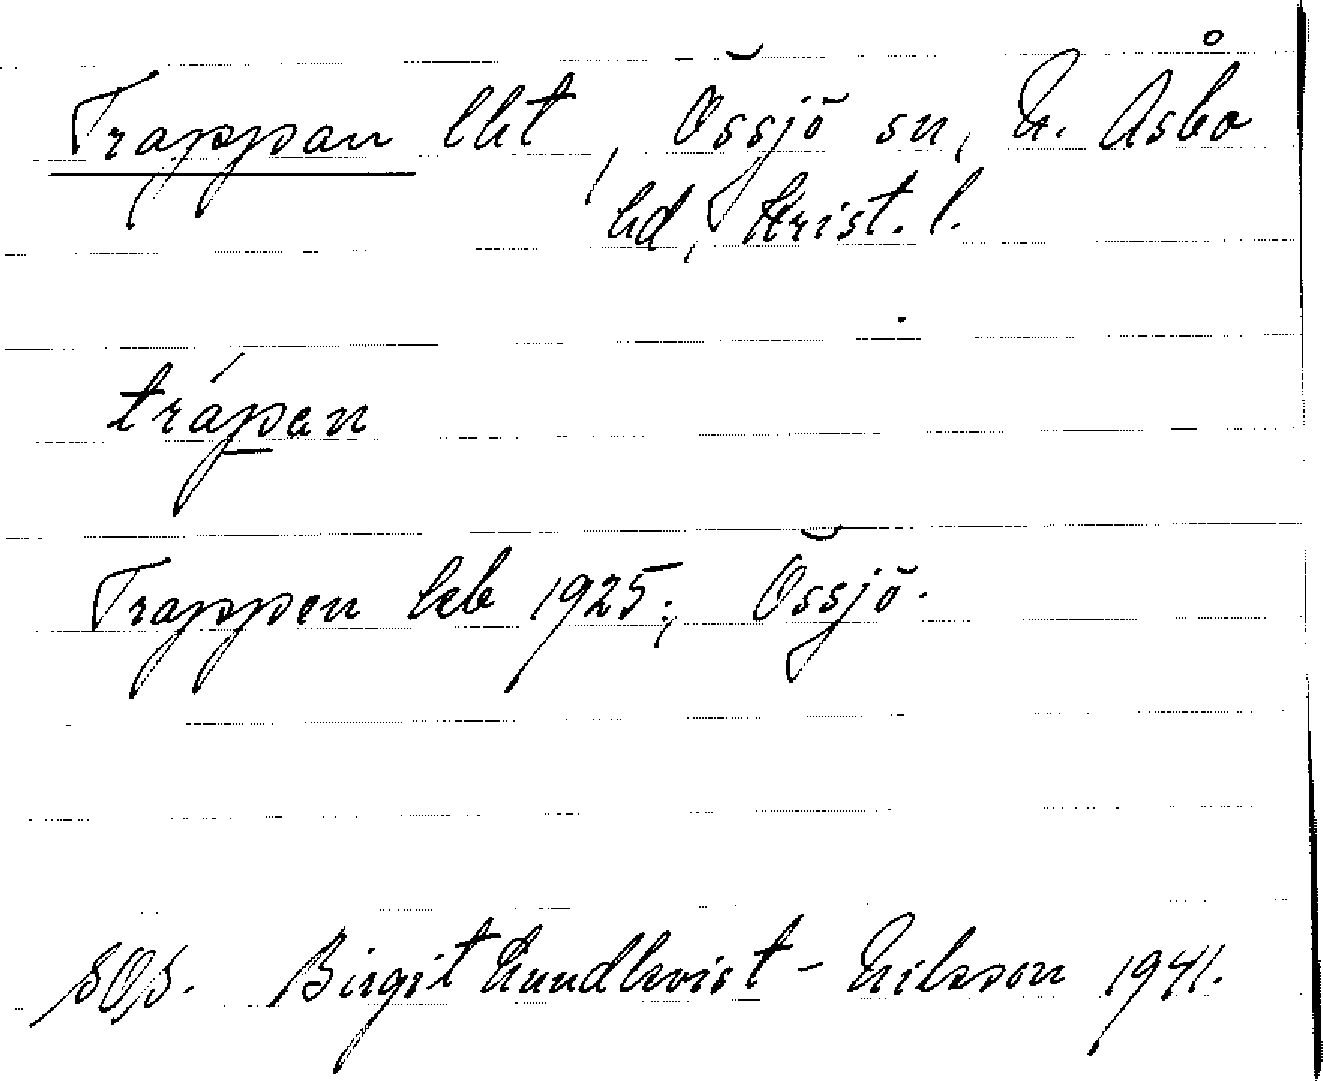 Trappan lht, Össjö sn, N. Åsbo
hd, Krist. l.
trápan
Trappen kb 1925; Össjö.
SOS. Birgit Lundkvist-Nilsson 1941.